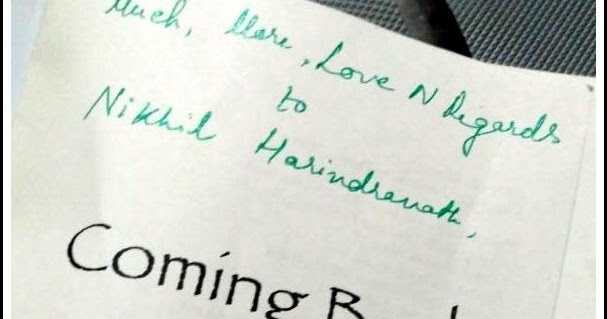 Much, More, Love N Regards
to
Nikhil Harindranath,
Coming